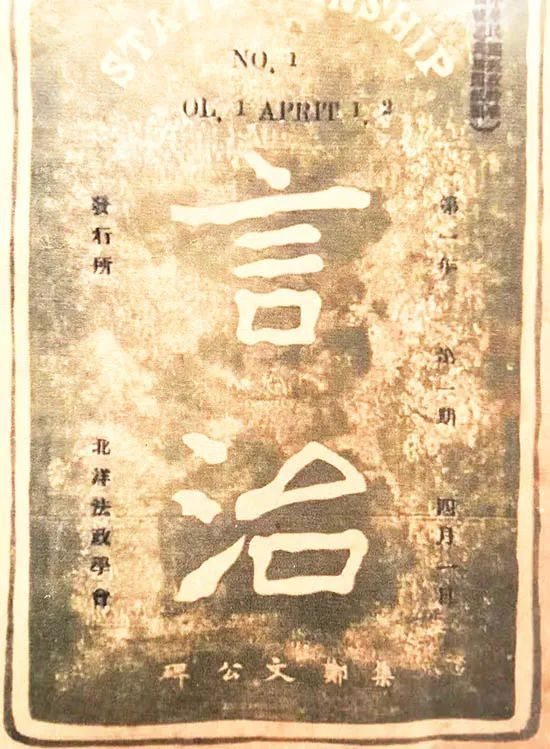 STAT NSHIP
NO. 1
OL. 1 APRIT 1. 2
第一年 第一期 四月一日
言治
發行所 北洋法政學會
集鄭文公碑